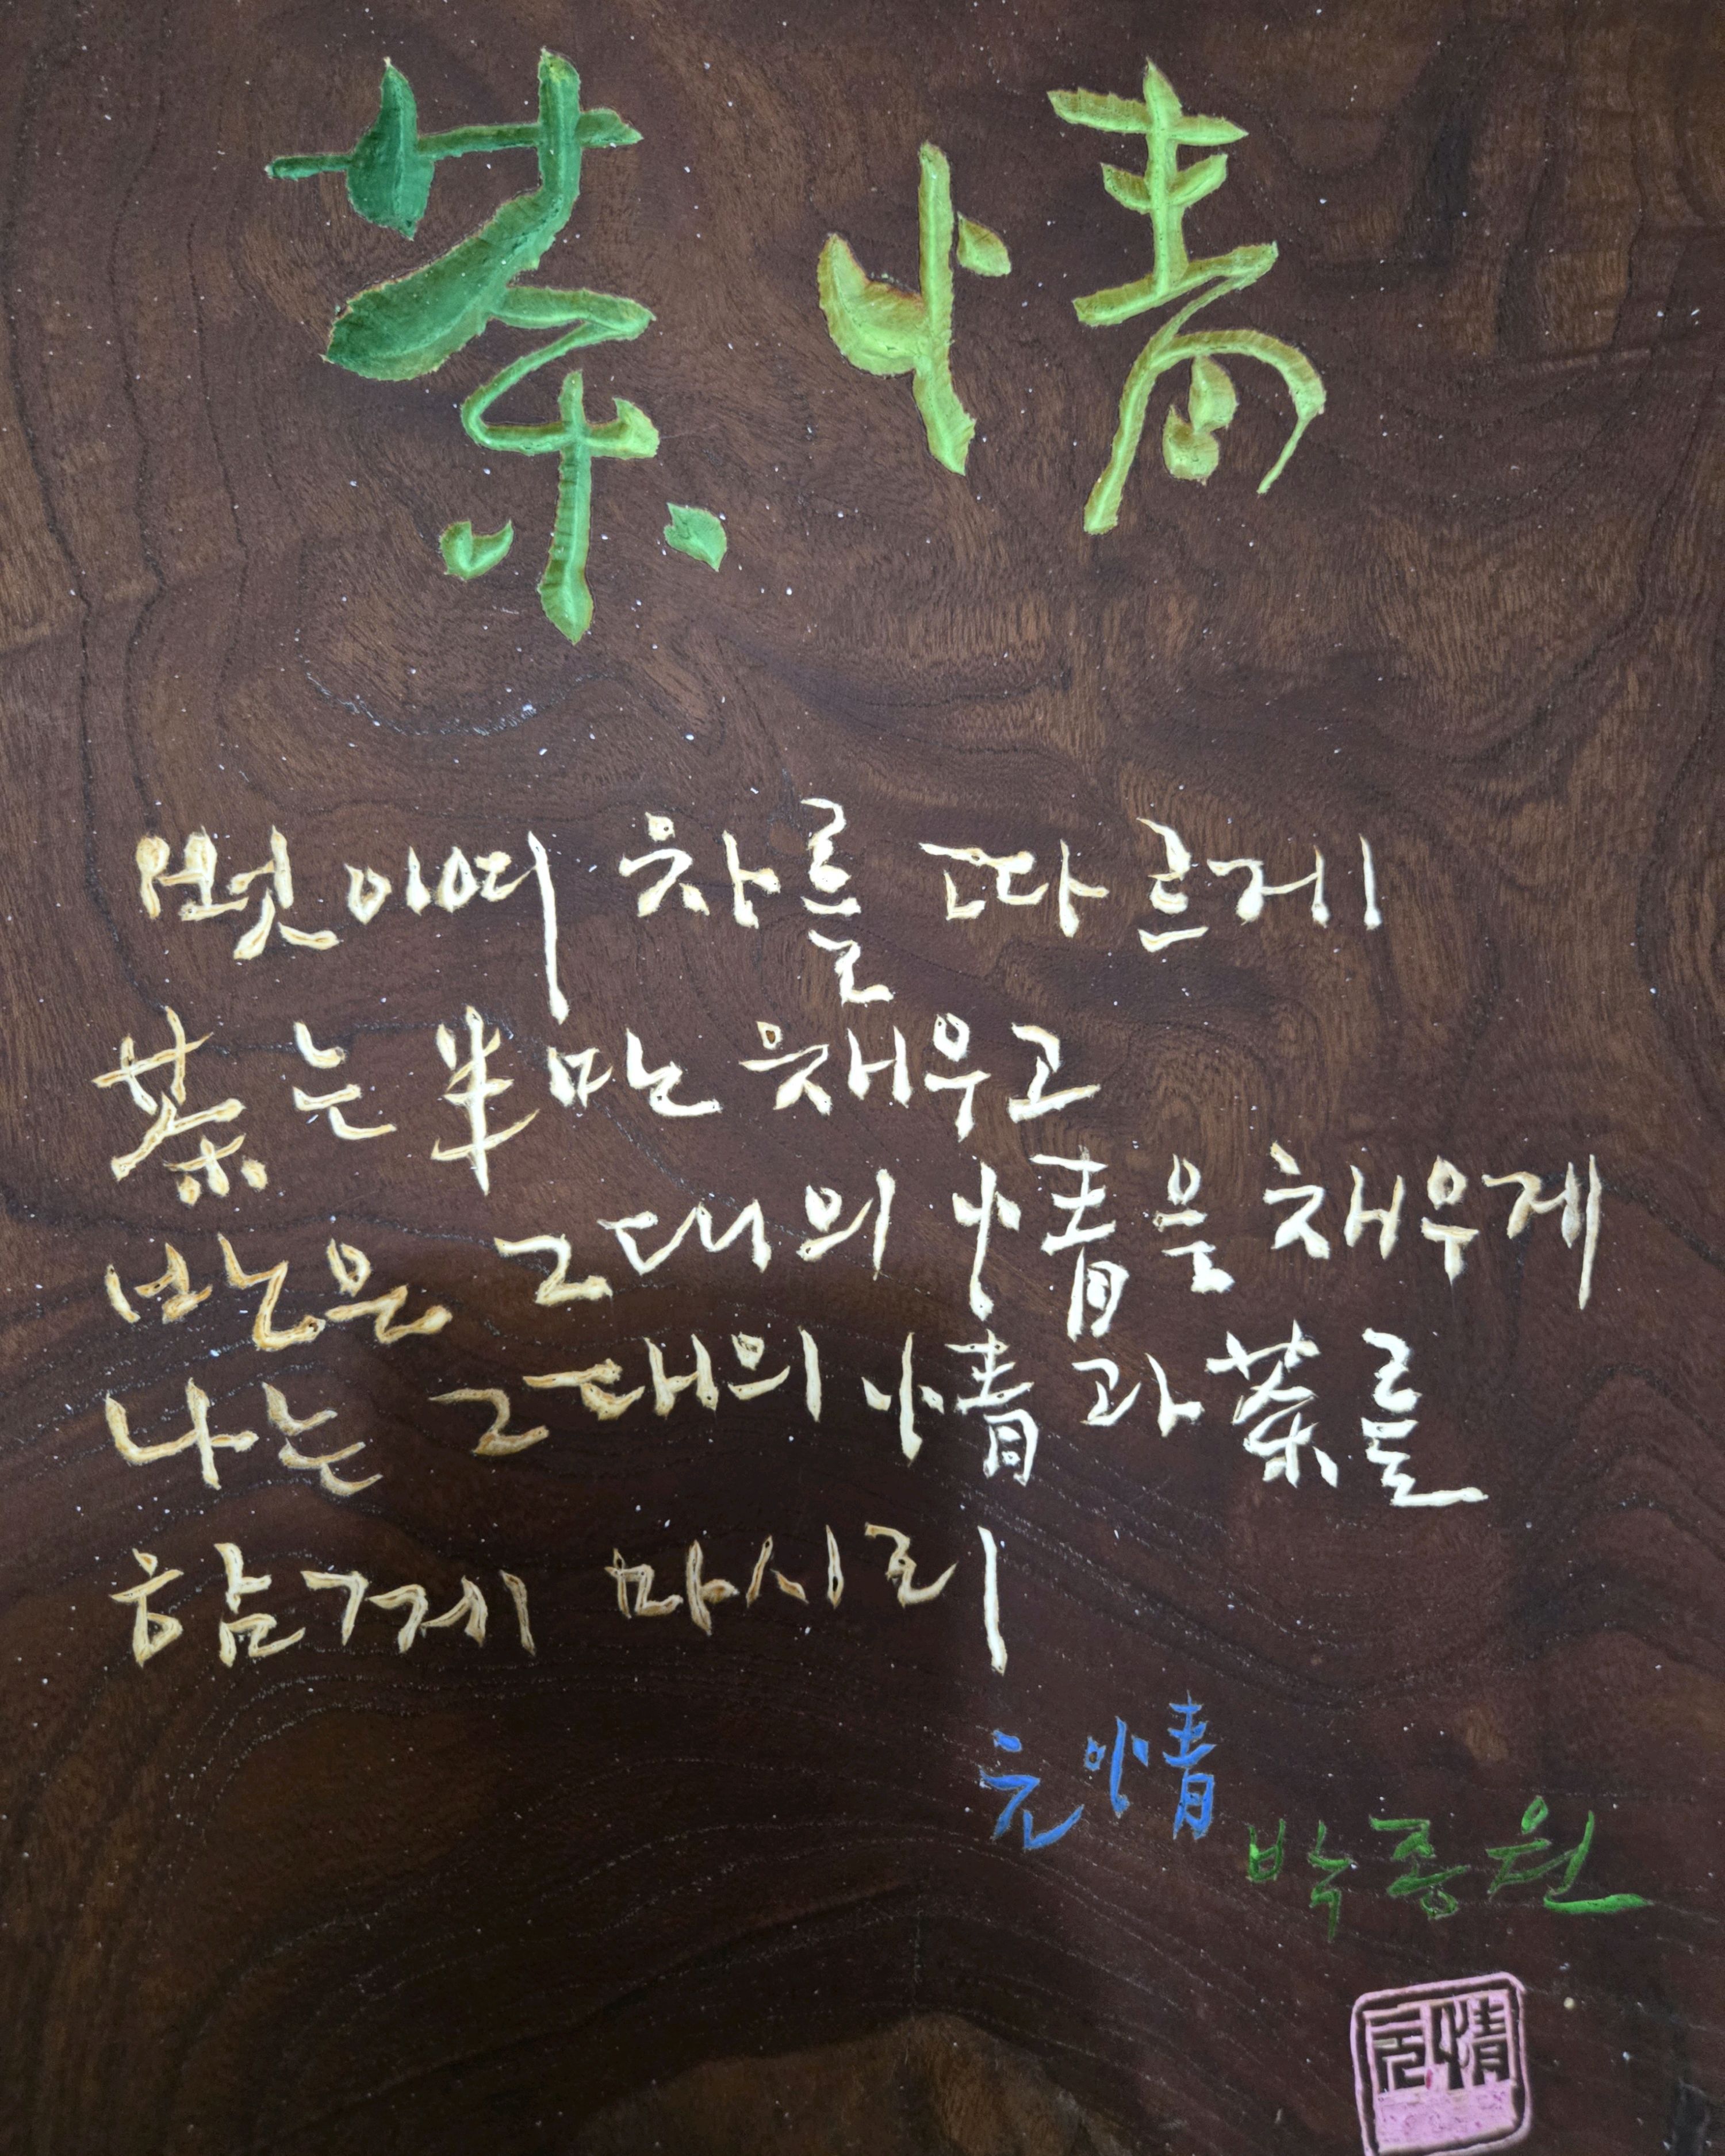 茶情
벗이여 차를 따르게
茶는 半만 채우고
반은 그대의 情을 채우게
나는 그대의 情과 茶를
함께 마시리
元情
박종원
元情